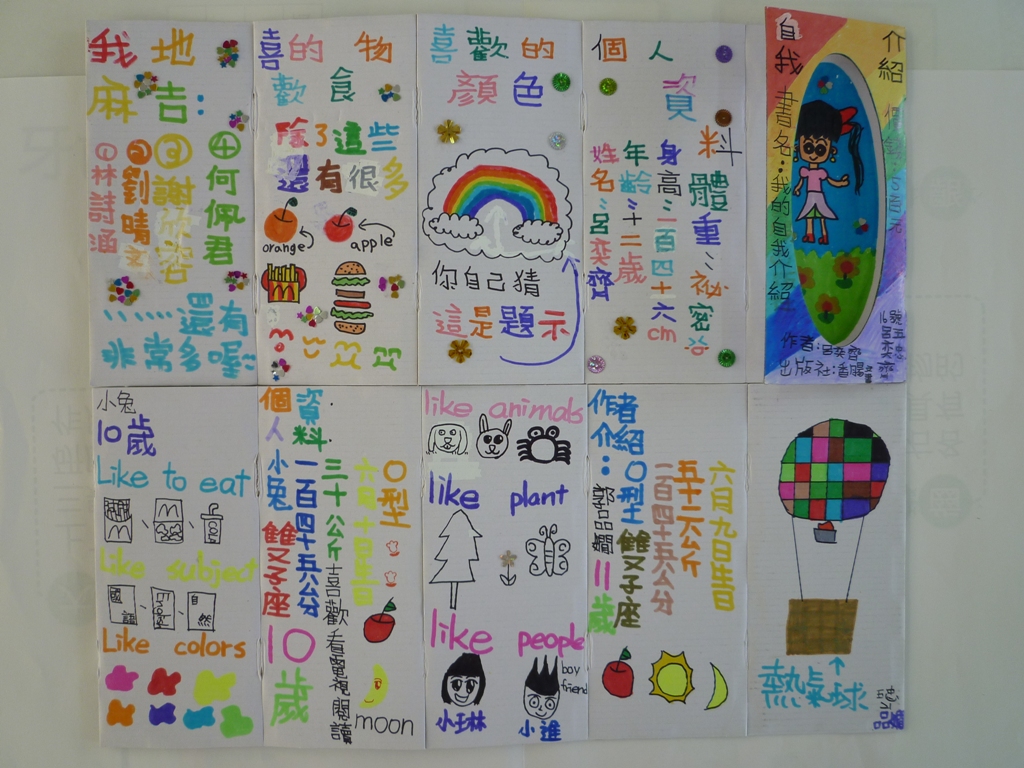 自我介紹
書名：我的自我介紹
作者：呂奕齊
出版社：
個人資料
姓名：呂奕齊
年齡：十二歲
身高：一百四十六cm
體重：祕密
喜歡的顏色
你自己猜
這是題示
喜歡的食物
除了這些
還有很多
orange
apple
我地麻吉：
①林詩涵
②劉晴
③謝欣容
④何佩君
……還有
非常多喔
小兔
10歲
Like to eat
like subject
國語
自然
Like colors
個人資料
小兔
一百四十五公分
三十公斤
六月十日生日
O型
雙子座
喜歡看電視閱讀
10歲
moon
like animals
like plant
like people
小琳
小進
boy friend
作者介紹：
O型
雙子座
11歲
五十六公斤
一百四十五公分
六月九日生日
熱氣球